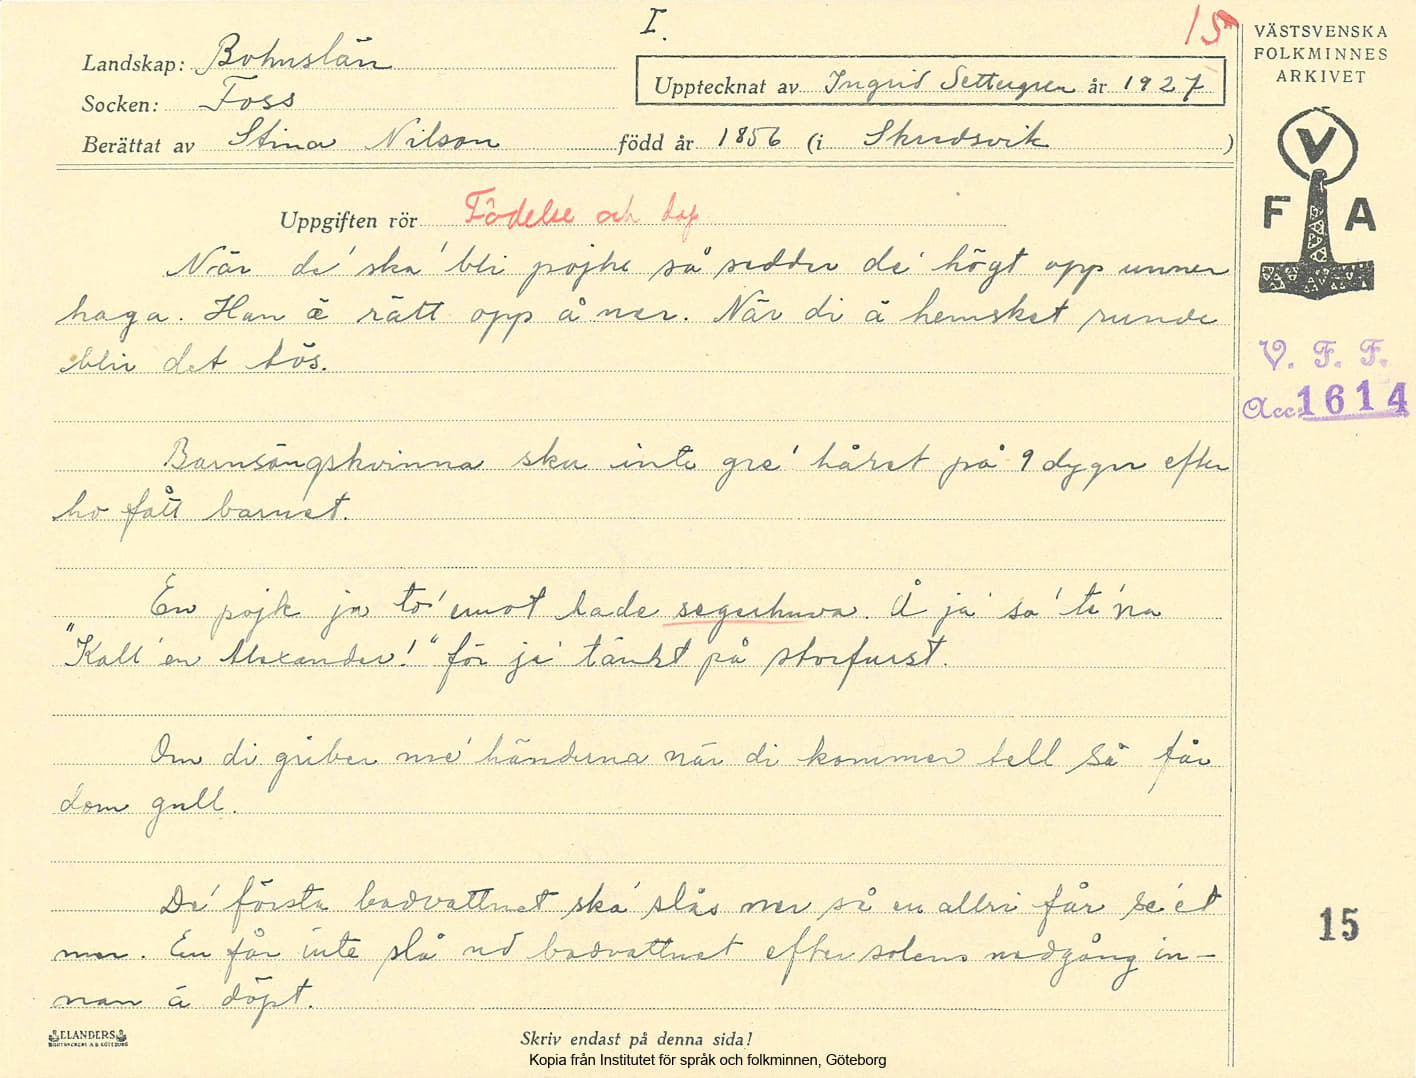 I.
15
Landskap: Bohuslän
Socken: Foss
Upptecknat av Ingrid Settergren år 1927
Berättat av Stina Nilson född år 1856 (i Skredsvik )
Uppgiften rör Födelse och dop
När de' ska' bli pojke så sedder de' högt opp unner
haga. Han ä rätt opp å ner. När di ä hemsket runde
blir det tös.
Barnsängskvinna ska inte gre' håret på 9 dygn efter
ho fått barnet.
En pojk ja to' emot hade segerhuva. Å ja' sa' te'na
"Kall'en Alexander!" för ja' tänkt på storfurst.
Om di griber me' händerna när di kommer tell så får
dom gull.
De' första badvattnet ska' slås ner så en allri får se'et
mer. En får inte slå ud badvattnet efter solens nedgång in-
nan ä döpt.
ELANDERS
BOKTRYCKERI A.B. GÖTEBORG
Skriv endast på denna sida!
Kopia från Institutet för språk och folkminnen, Göteborg
VÄSTSVENSKA
FOLKMINNES
ARKIVET
V
F A
V. F. F.
Acc. 1614
15